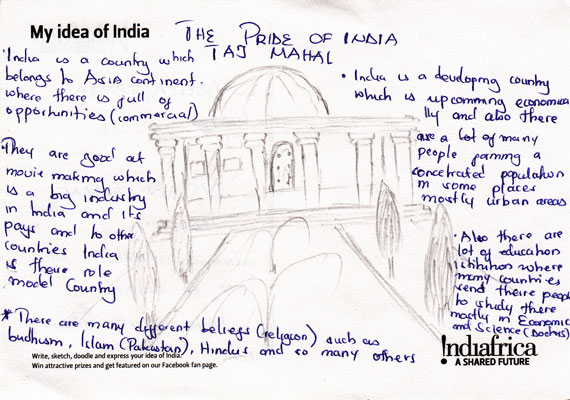 My idea of India
THE PRIDE OF INDIA
TAJ MAHAL
· India is a country which
belongs to ASIA continent.
where there is full of
opportunities (commercial)
· They are good at
movie making which
is a big industry
in India and its
pays and to other
countries India
is there role
model Country
* There are many different beliefs (religion) such as
budhusm, Islam (Pakistan), Hindus and so many others
• India is a developing country
which is upcomming economica
lly and also there
are a lot of many
people forming a
concetrated population
in some places
mostly urban areas
· Also there are
lot of education
istitution where
many countries
send theire people
to study there
mostly in Economic
and Science (Doctors)
Write, sketch, doodle and express your idea of India.
Win attractive prizes and get featured on our Facebook fan page.
Indiafrica
A SHARED FUTURE